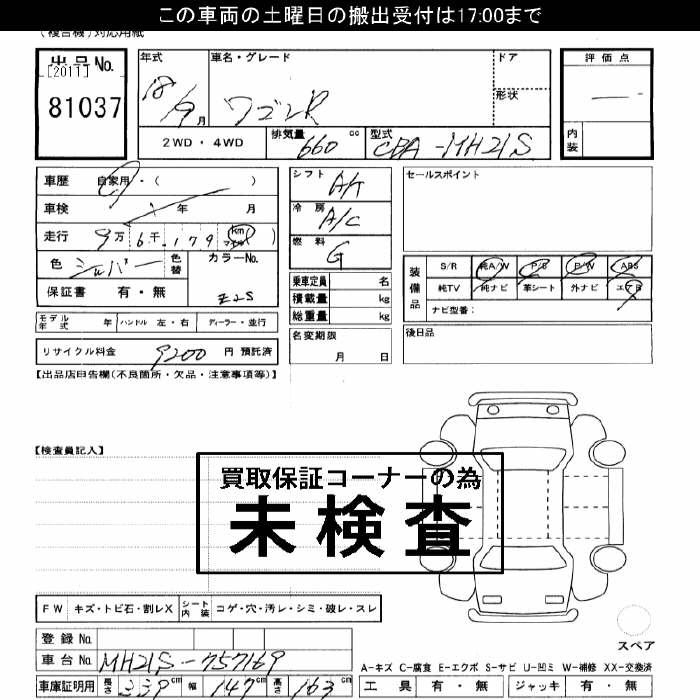 この車両の土曜日の搬出受付は17:00まで
(複合機)対応用紙
出品No.
[2011]
81037
年式
車名・グレード
ドア
評価点
18/9月
ワゴンR
形状
—
2WD・4WD
排気量
660 cc
型式
CBA-MH21S
内装
車歴 自家用・( )
車検 年 月
走行 9万6千179 km マイル ( )
色 シルバー
色替
カラーNo.
Z2S
保証書 有・無
シフト
A/T
冷房
A/C
燃料
G
乗車定員 名
積載量 kg
総重量 kg
セールスポイント
装備品
S/R 純A/W P/S P/W ABS
純TV 純ナビ 革シート 外ナビ エアB
ナビ型番:
モデル年式 年 ハンドル 左・右 ディーラー・並行
名変期限
月 日
後日品
リサイクル料金 9200 円 預託済
【出品店申告欄(不良箇所・欠品・注意事項等)】
【検査員記入】
買取保証コーナーの為
未検査
FW キズ・トビ石・割レX シート内装 コゲ・穴・汚レ・シミ・破レ・スレ
登録No.
スペア
車台No. MH21S-757169
A-キズ C-腐食 E-エクボ S-サビ U-凹ミ W-補修 XX-交換済
車庫証明用 長さ 339cm 幅 147cm 高さ 163cm
工具 有・無 ジャッキ 有・無